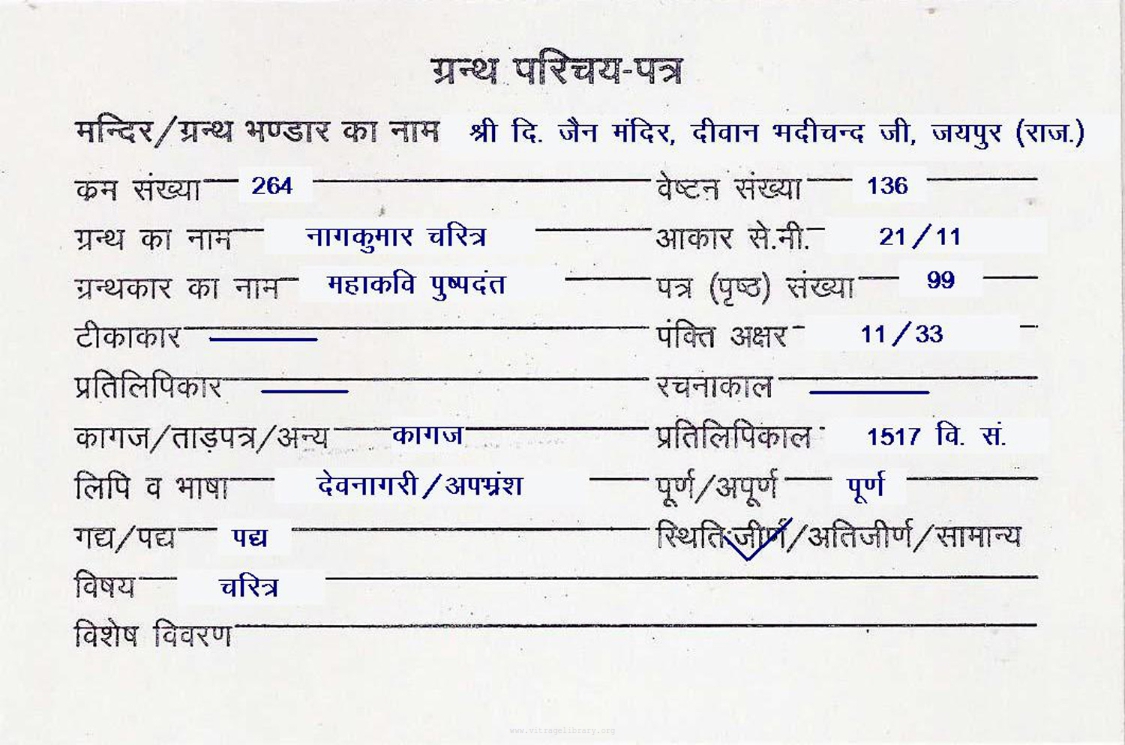 ग्रन्थ परिचय-पत्र
मन्दिर/ग्रन्थ भण्डार का नाम श्री दि. जैन मंदिर, दीवान भदीचन्द जी, जयपुर (राज.)
क्रम संख्या 264 वेष्टन संख्या 136
ग्रन्थ का नाम नागकुमार चरित्र आकार से.मी. 21/11
ग्रन्थकार का नाम महाकवि पुष्पदंत पत्र (पृष्ठ) संख्या 99
टीकाकार पंक्ति अक्षर 11/33
प्रतिलिपिकार रचनाकाल
कागज/ताड़पत्र/अन्य कागज प्रतिलिपिकाल 1517 वि. सं.
लिपि व भाषा देवनागरी/अपभ्रंश पूर्ण/अपूर्ण पूर्ण
गद्य/पद्य पद्य स्थिति:जीर्ण/अतिजीर्ण/सामान्य
विषय चरित्र
विशेष विवरण